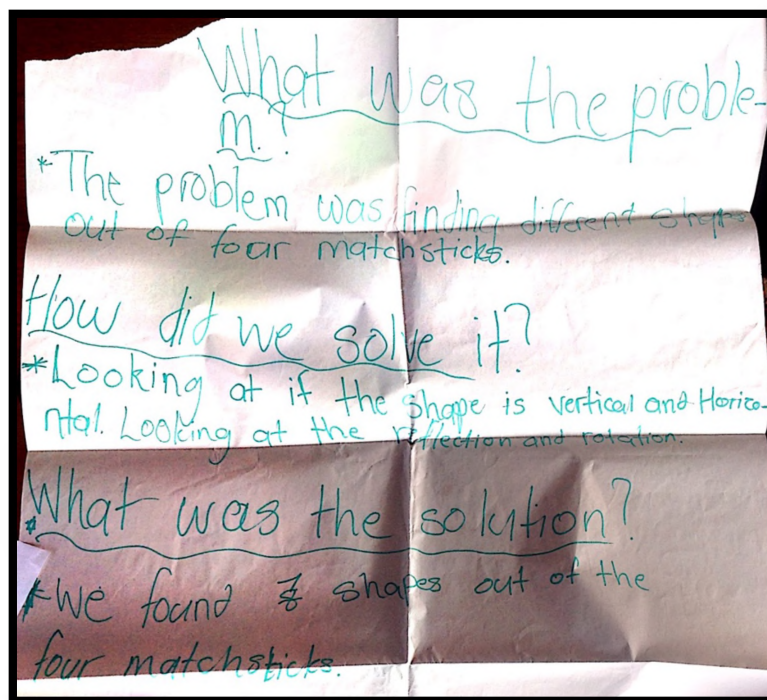 What was the proble-
m.?
*The problem was finding different shapes
out of four matchsticks.
How did we solve it?
*Looking at if the shape is vertical and Horizo-
ntal. Looking at the reflection and rotation.
What was the solution?
*We found shapes out of the
four matchsticks.